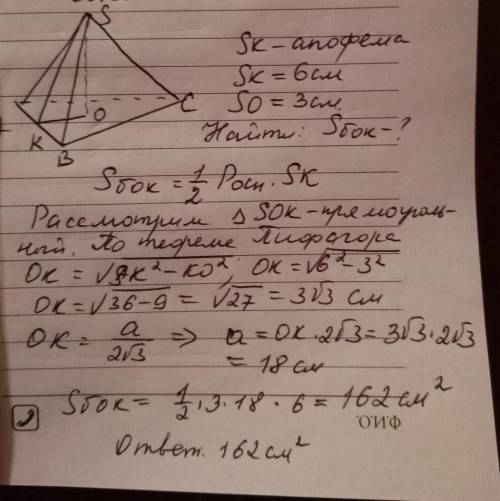 S
O
C
K
B
SK - апофема
SK = 6см
SO = 3см
Найти: Sбок - ?
Sбок = 1/2 Pосн. · SK
Рассмотрим △ SOK - прямоуголь-
ный. По теореме Пифагора
OK = √SK² - KO²; OK = √6² - 3²
OK = √36 - 9 = √27 = 3√3 см
OK = a/2√3 => a = OK · 2√3 = 3√3 · 2√3
= 18 см
Sбок = 1/2 · 3 · 18 · 6 = 162 см²
Ф.И.О.
Ответ. 162 см²